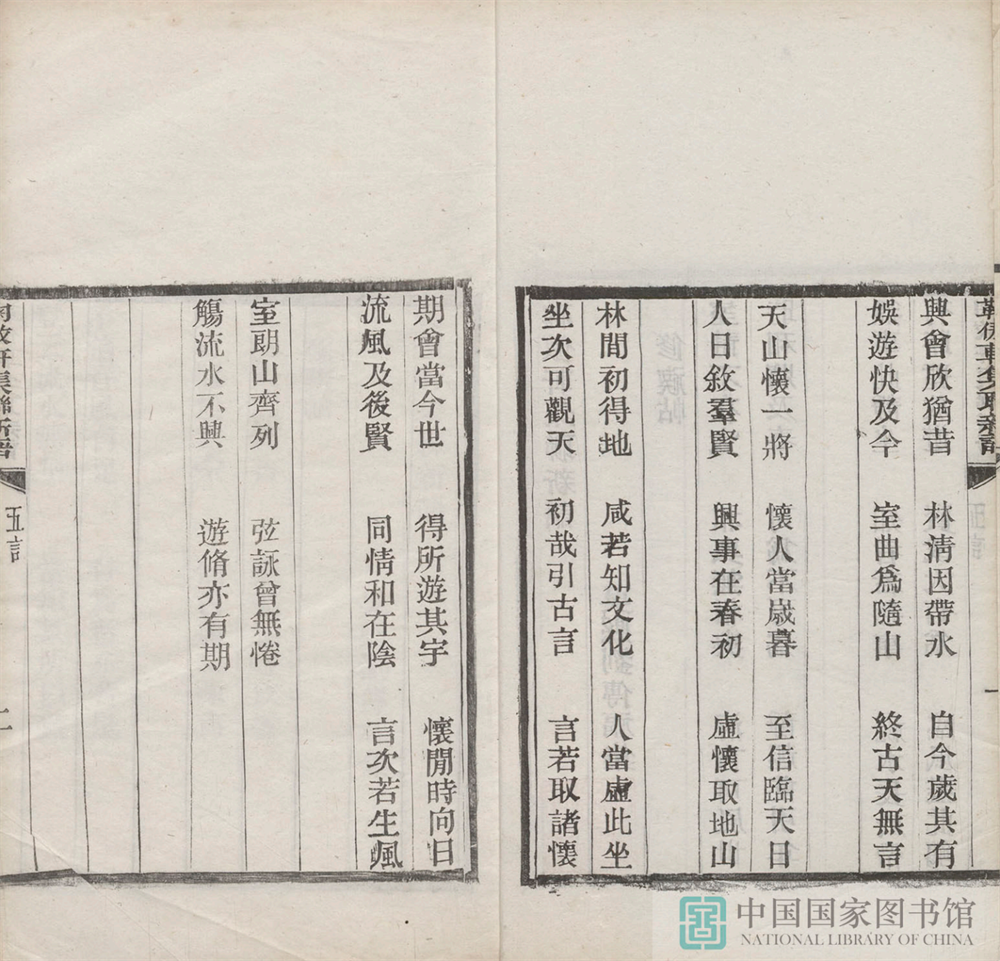 興會欣猶昔 林淸因帶水 自今歲其有
娛遊快及今 室曲爲隨山 終古天無言
天山懷一將 懷人當歲暮 至信臨天日
人日敘羣賢 興事在春初 虛懷取地山
林間初得地 咸若知文化 人當虛此坐
坐次可觀天 初哉引古言 言若取諸懷
期會當今世 得所遊其宇 懷閒時向日
流風及後賢 同情和在陰 言次若生風
室朗山齊列 弦詠曾無惓
觴流水不興 遊脩亦有期
集聯新語
五言
二
中国国家图书馆
NATIONAL LIBRARY OF CHINA